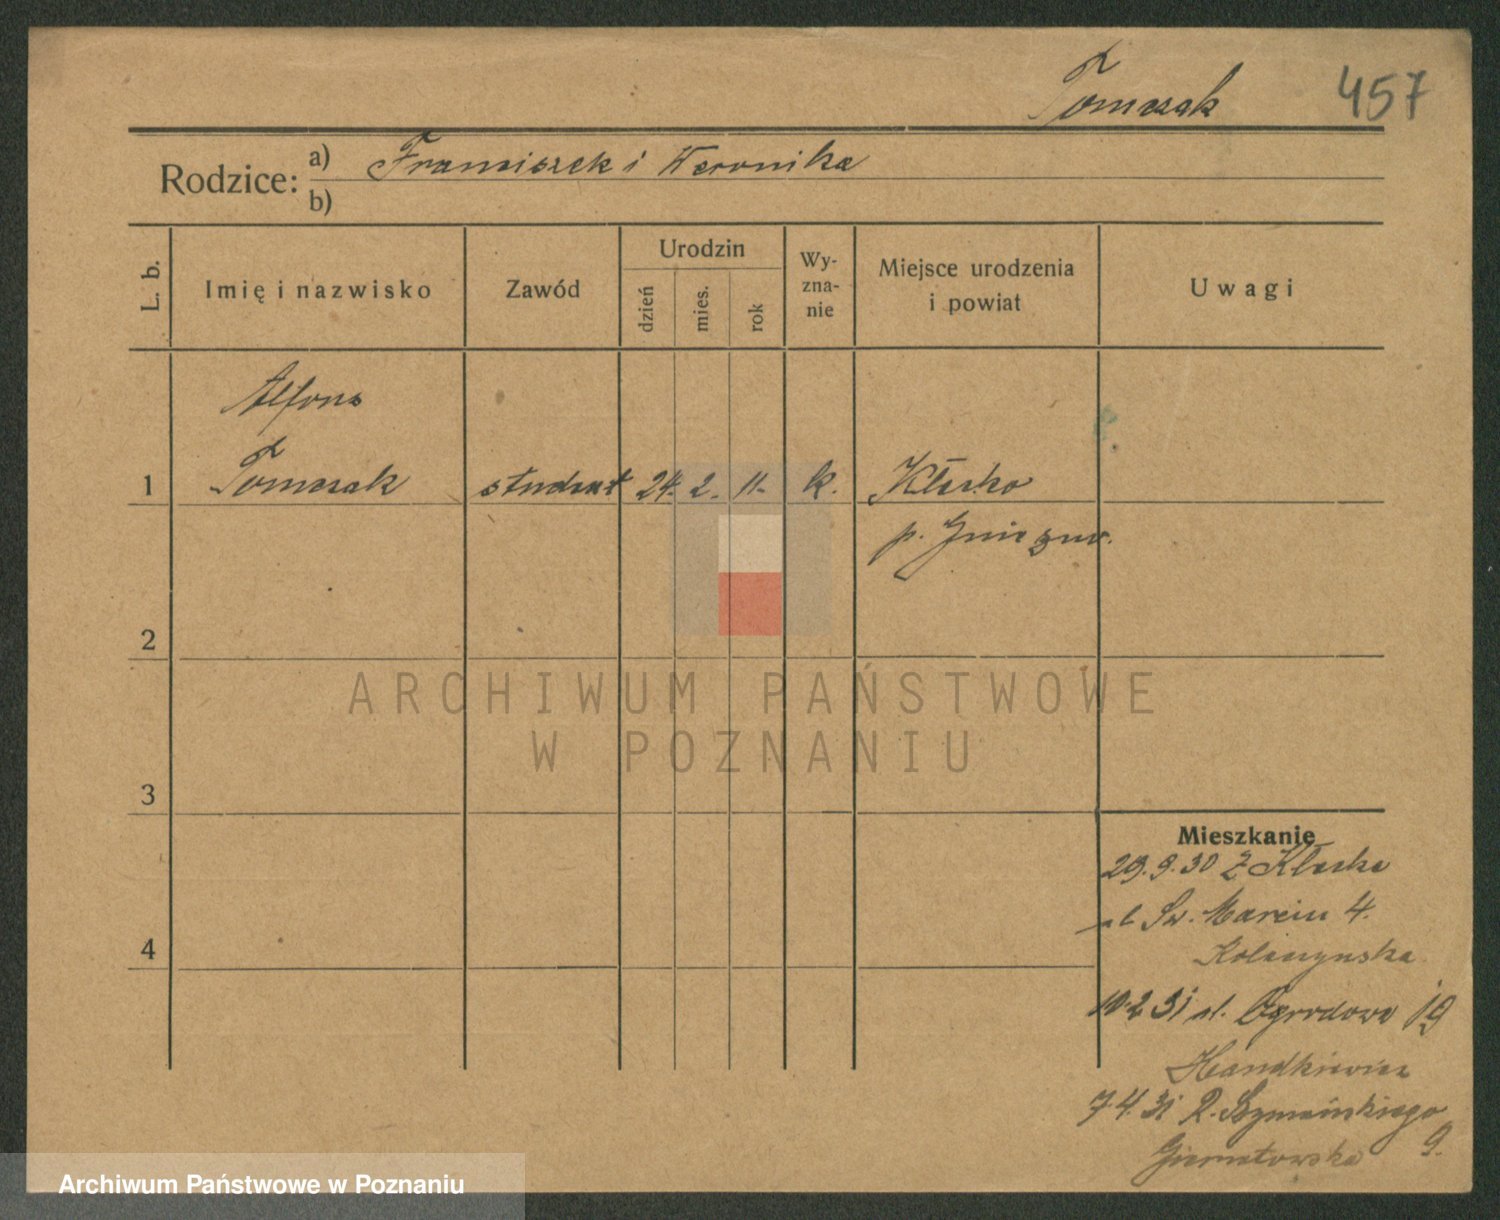 Tomczak 457
Rodzice: a) Franciszek i Weronika
b)
L. b. Imię i nazwisko Zawód Urodzin dzień mies. rok Wy-zna-nie Miejsce urodzenia i powiat Uwagi
Alfons
1 Tomczak student 24. 2. 11. k. Kłecko
p. Gniezno.
2
ARCHIWUM PAŃSTWOWE
W POZNANIU
3
Mieszkanie
29.9.30 Z Kłecka
ul Św. Marcin 4.
4
10.2 31 ul. Ogrodowa 19
7.4.31 Szymańskiego
9.
Archiwum Państwowe w Poznaniu